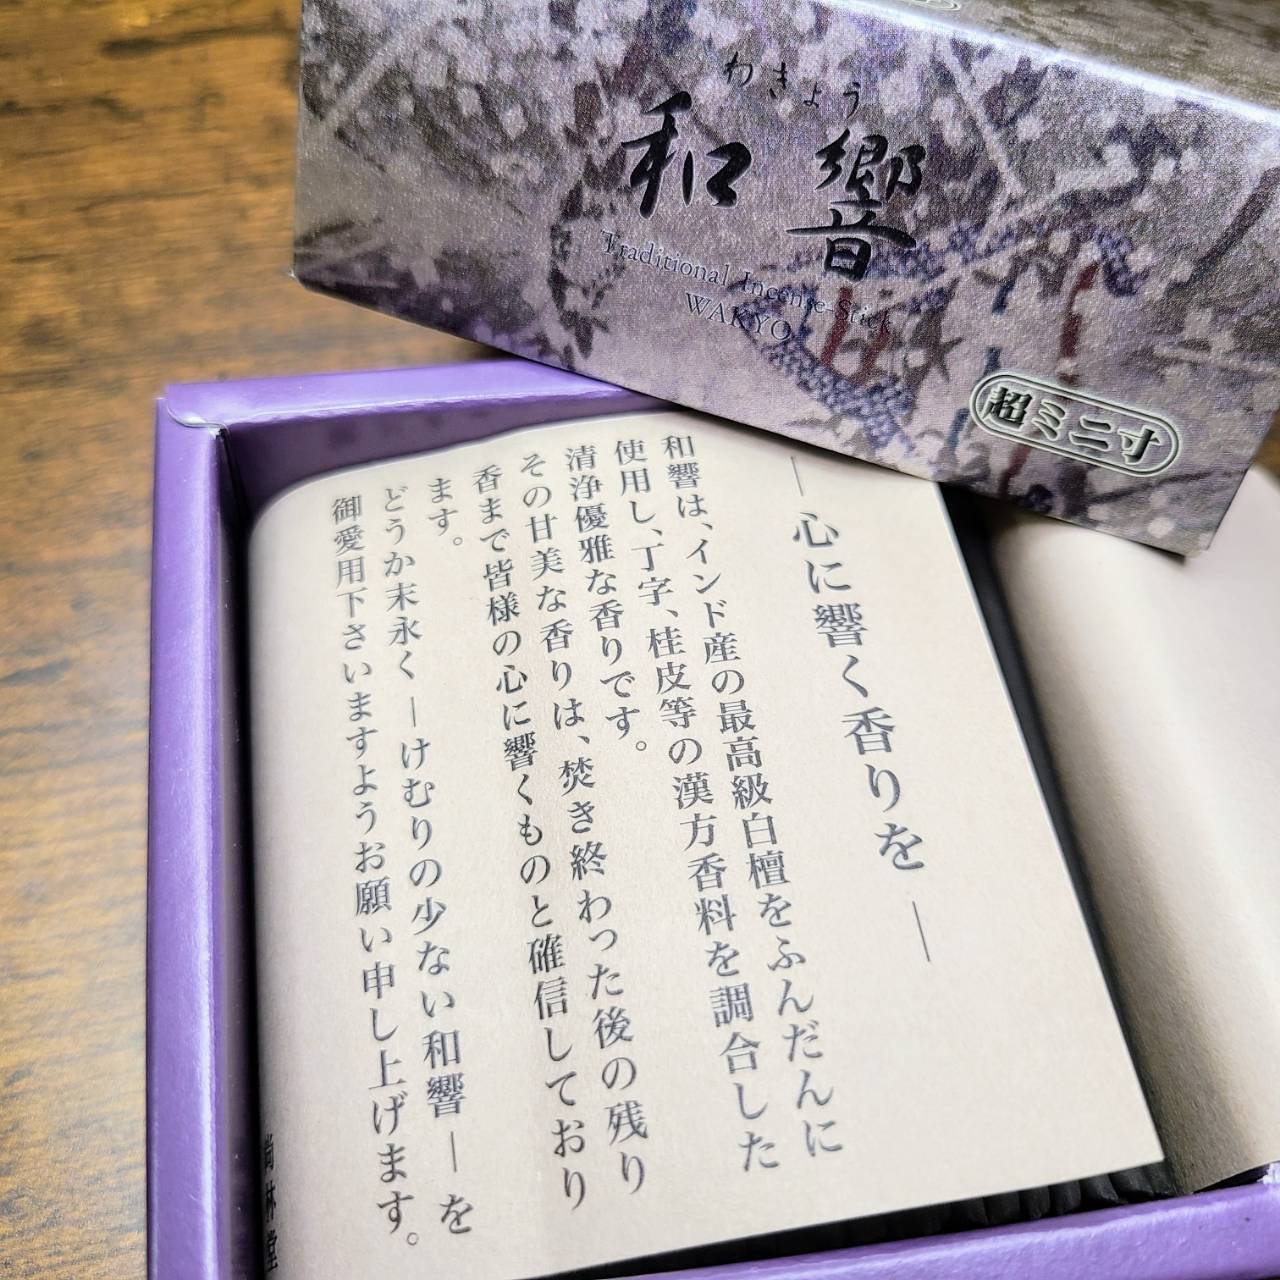 わきょう
和響
Traditional Incense-Stick
WAKYO
超ミニ寸
―心に響く香りを―
和響は、インド産の最高級白檀をふんだんに
使用し、丁字、桂皮等の漢方香料を調合した
清浄優雅な香りです。
その甘美な香りは、焚き終わった後の残り
香まで皆様の心に響くものと確信しており
ます。
どうか末永く―けむりの少ない和響―を
御愛用下さいますようお願い申し上げます。
尚林堂